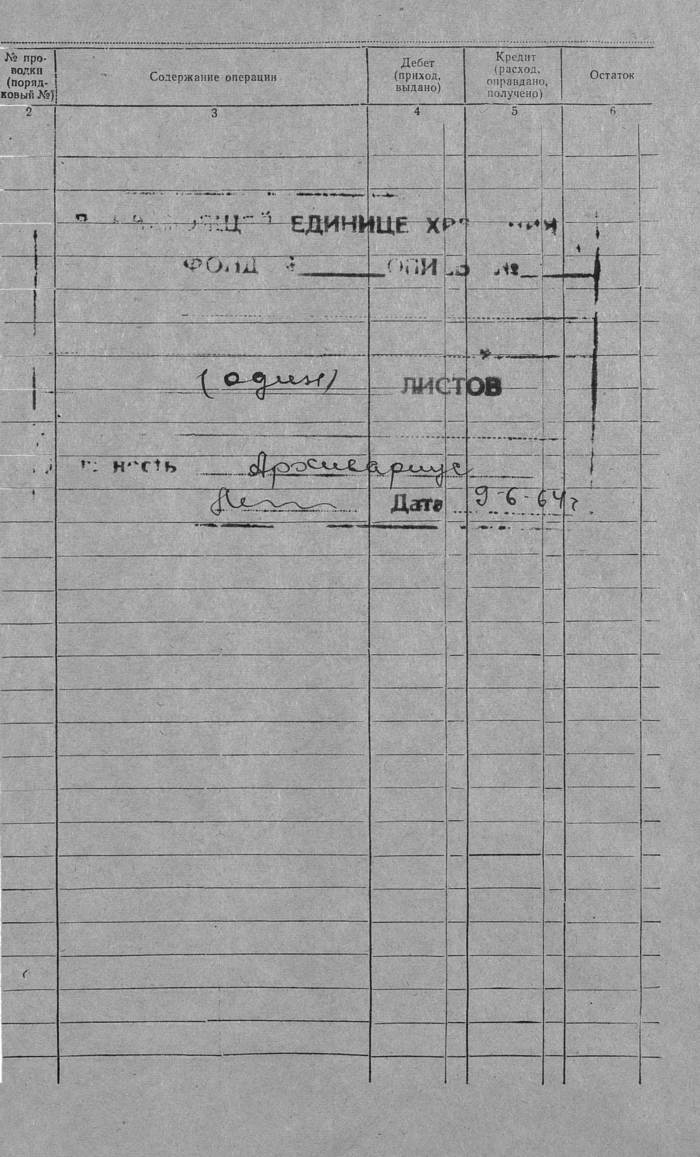 № про-
водки
(поряд-
ковый №)
Содержание операции
Дебет
(приход,
выдано)
Кредит
(расход,
оправдано,
получено)
Остаток
2 3 4 5 6
ЕДИНИЦЕ
ФОНД ОПИСЬ №
(один) ЛИСТОВ
Архивариус
Дата 9-6-64г.